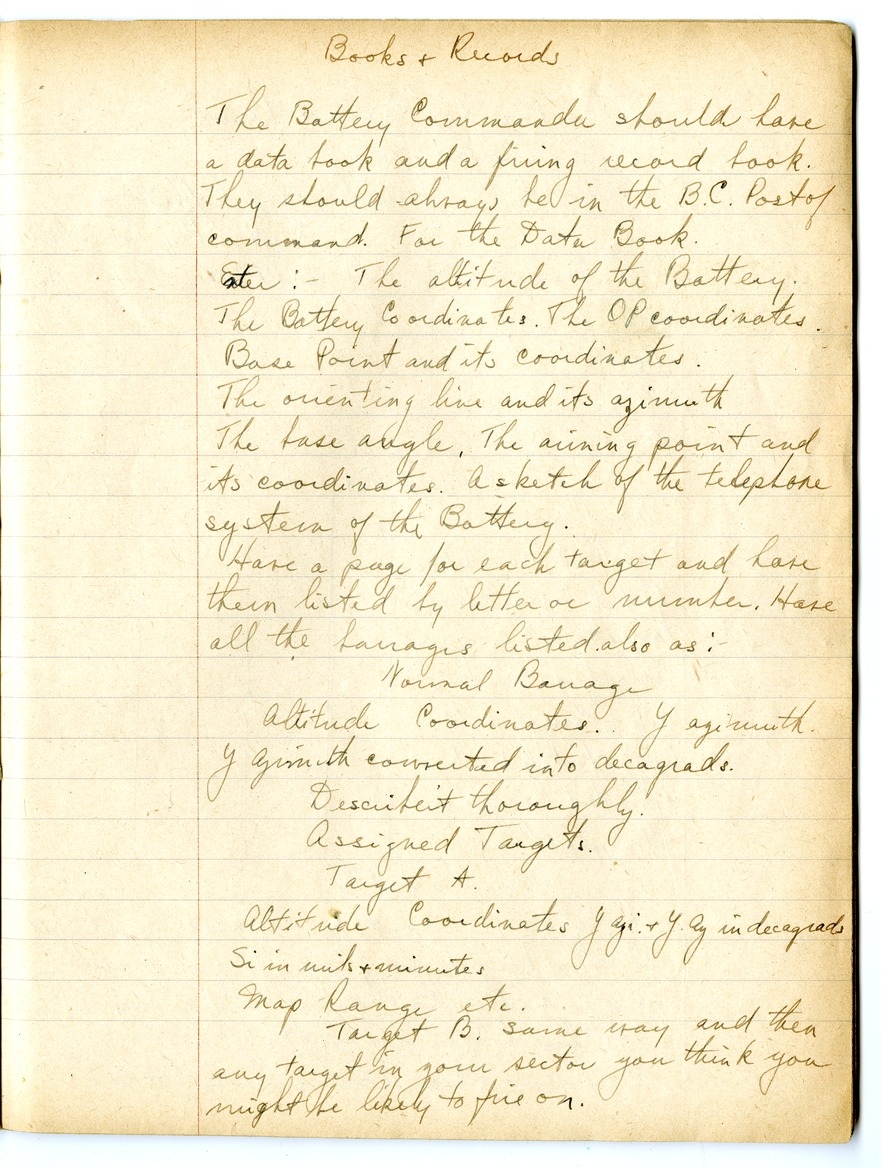 Books & Records
The Battery Commander should have
a data book and a firing record book.
They should always be in the B.C. Post of
command. For the Data Book.
Enter :- The altitude of the Battery.
The Battery Coordinates. The OP coordinates.
Base Point and its coordinates.
The orienting line and its azimuth
The base angle, The aiming point and
its coordinates. A sketch of the telephone
system of the Battery.
Have a page for each target and have
them listed by letter or number. Have
all the barrages listed also as :-
Normal Barrage
Altitude Coordinates. Y azimuth.
Y azimuth converted into decagrads.
Describe it thoroughly.
Assigned Targets.
Target A.
Altitude Coordinates Y azi. + Y. az in decagrads
Si in mils + minutes
Map Range etc.
Target B. same way and then
any target in your sector you think you
might be likely to fire on.